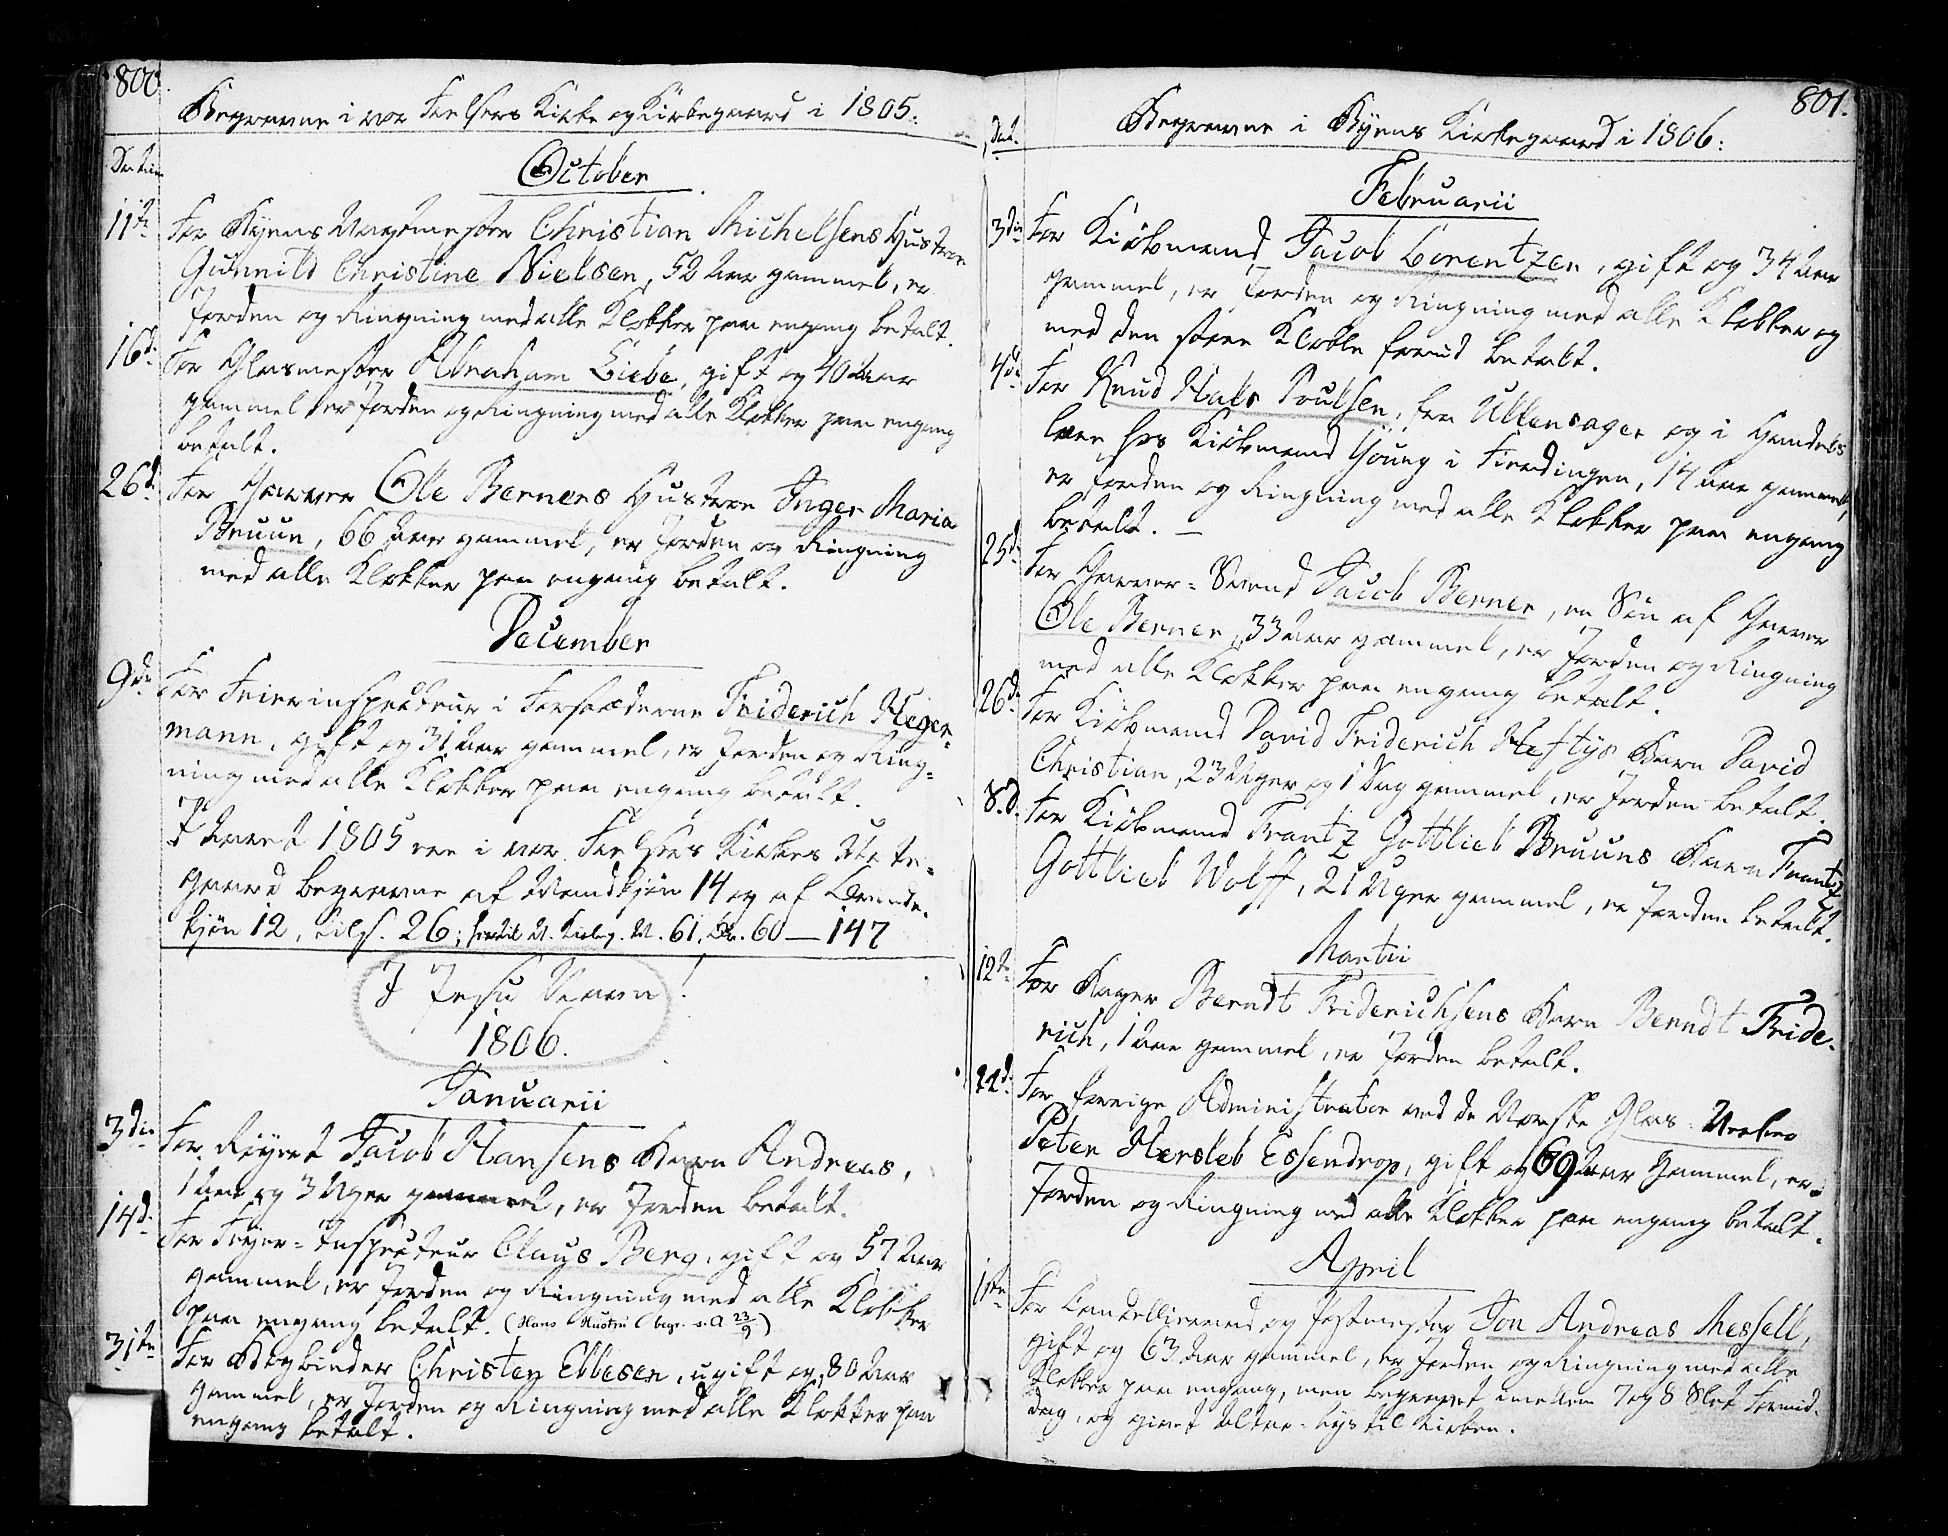 800.
Begravne i vor Frelsers Kirke og Kirkegaard i 1805.
Datum
October
11te For Byens Vagtmester Christian Michelsens Hustrue
Gunnild Christine Nielsen, 52 Aar gammel, er
Jorden og Ringning med alle Klokker paa engang betalt.
16d. For Glasmester Abraham Liebe, gift og 40 Aar
gammel er Jorden og Ringning med alle Klokker paa engang
betalt.
26d. For Garver Ole Berners Hustrue Inger Maria
Bruun, 66 Aar gammel, er Jorden og Ringning
med alle Klokker paa engang betalt.
December
9de For Feierinspecteur i Forstæderne Friderich Heger-
mann, gift og 31 Aar gammel, er Jorden og Ring-
ning med alle Klokker paa engang betalt.
I Aaret 1805 ere i vor Frelsers Kirkes Uhrte-
gaard begravne af Mandkjøn 14 og af Qvinde-
kjøn 12, tils. 26; M. 61, Qv. 60 — 147
I Jesu Navn!
1806.
Januarii
3die For Jacob Hansens Barn Andreas,
1 Aar og 3 Uger gammel, er Jorden betalt.
14d. For Feyer-Inspecteur Claus Berg, gift og 57 Aar
gammel, er Jorden og Ringning med alle Klokker
paa engang betalt. (Hans Hustru begr. s. A 23/9)
31te For Bogbinder Christen Ebbesen, ugift og 80 Aar
gammel, er Jorden og Ringning med alle Klokker paa
engang betalt.
801.
Dat. Begravne i Byens Kirkegaard i 1806:
Februarii
3die For Kiøbmand Jacob Lorentzen, gift og 34 Aar
gammel, er Jorden og Ringning med alle Klokker og
med den store Klokke forud betalt.
4de For Knud Hals Poulsen, fra Ullensager og i Handels
lære hos Kiøbmand Young i Fierdingen, 14 Aar gammel,
er Jorden og Ringning med alle Klokker paa engang
betalt. —
25d. For Garver-Svend Jacob Berner, en Søn af Garver
Ole Berner, 33 Aar gammel, er Jorden og Ringning
med alle Klokker paa engang betalt.
26d. For Kiøbmand David Friderich Heftÿs Barn David
Christian, 23 Uger og 1 Dag gammel, er Jorden betalt.
S.D. For Kiøbmand Frantz Gottlieb Bruuns Barn Frantz
Gottlieb Wolff, 21 Uger gammel, er Jorden betalt.
Martii
12te For Bager Berndt Friderichsens Barn Berndt Fride-
rich, 1 Aar gammel, er Jorden betalt.
22d. For forrige Administrator ved de Norske Glas-Verker
Peter Hersleb Essendrop, gift og 69 Aar gammel, er
Jorden og Ringning med alle Klokker paa engang betalt.
April
1ste For Cancelliraad og Postmester Jon Andreas Messell,
gift og 63 Aar gammel, er Jorden og Ringning med alle
Klokker paa engang, men begravet imellem 7 og 8 Slet Formid-
dag, og givet Altar-Lys til Kirken.